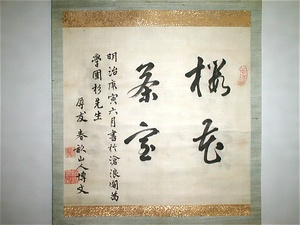 花
茶室
明治庚寅六月書於滄浪閣為
學圃杉先生
春畝山人博文